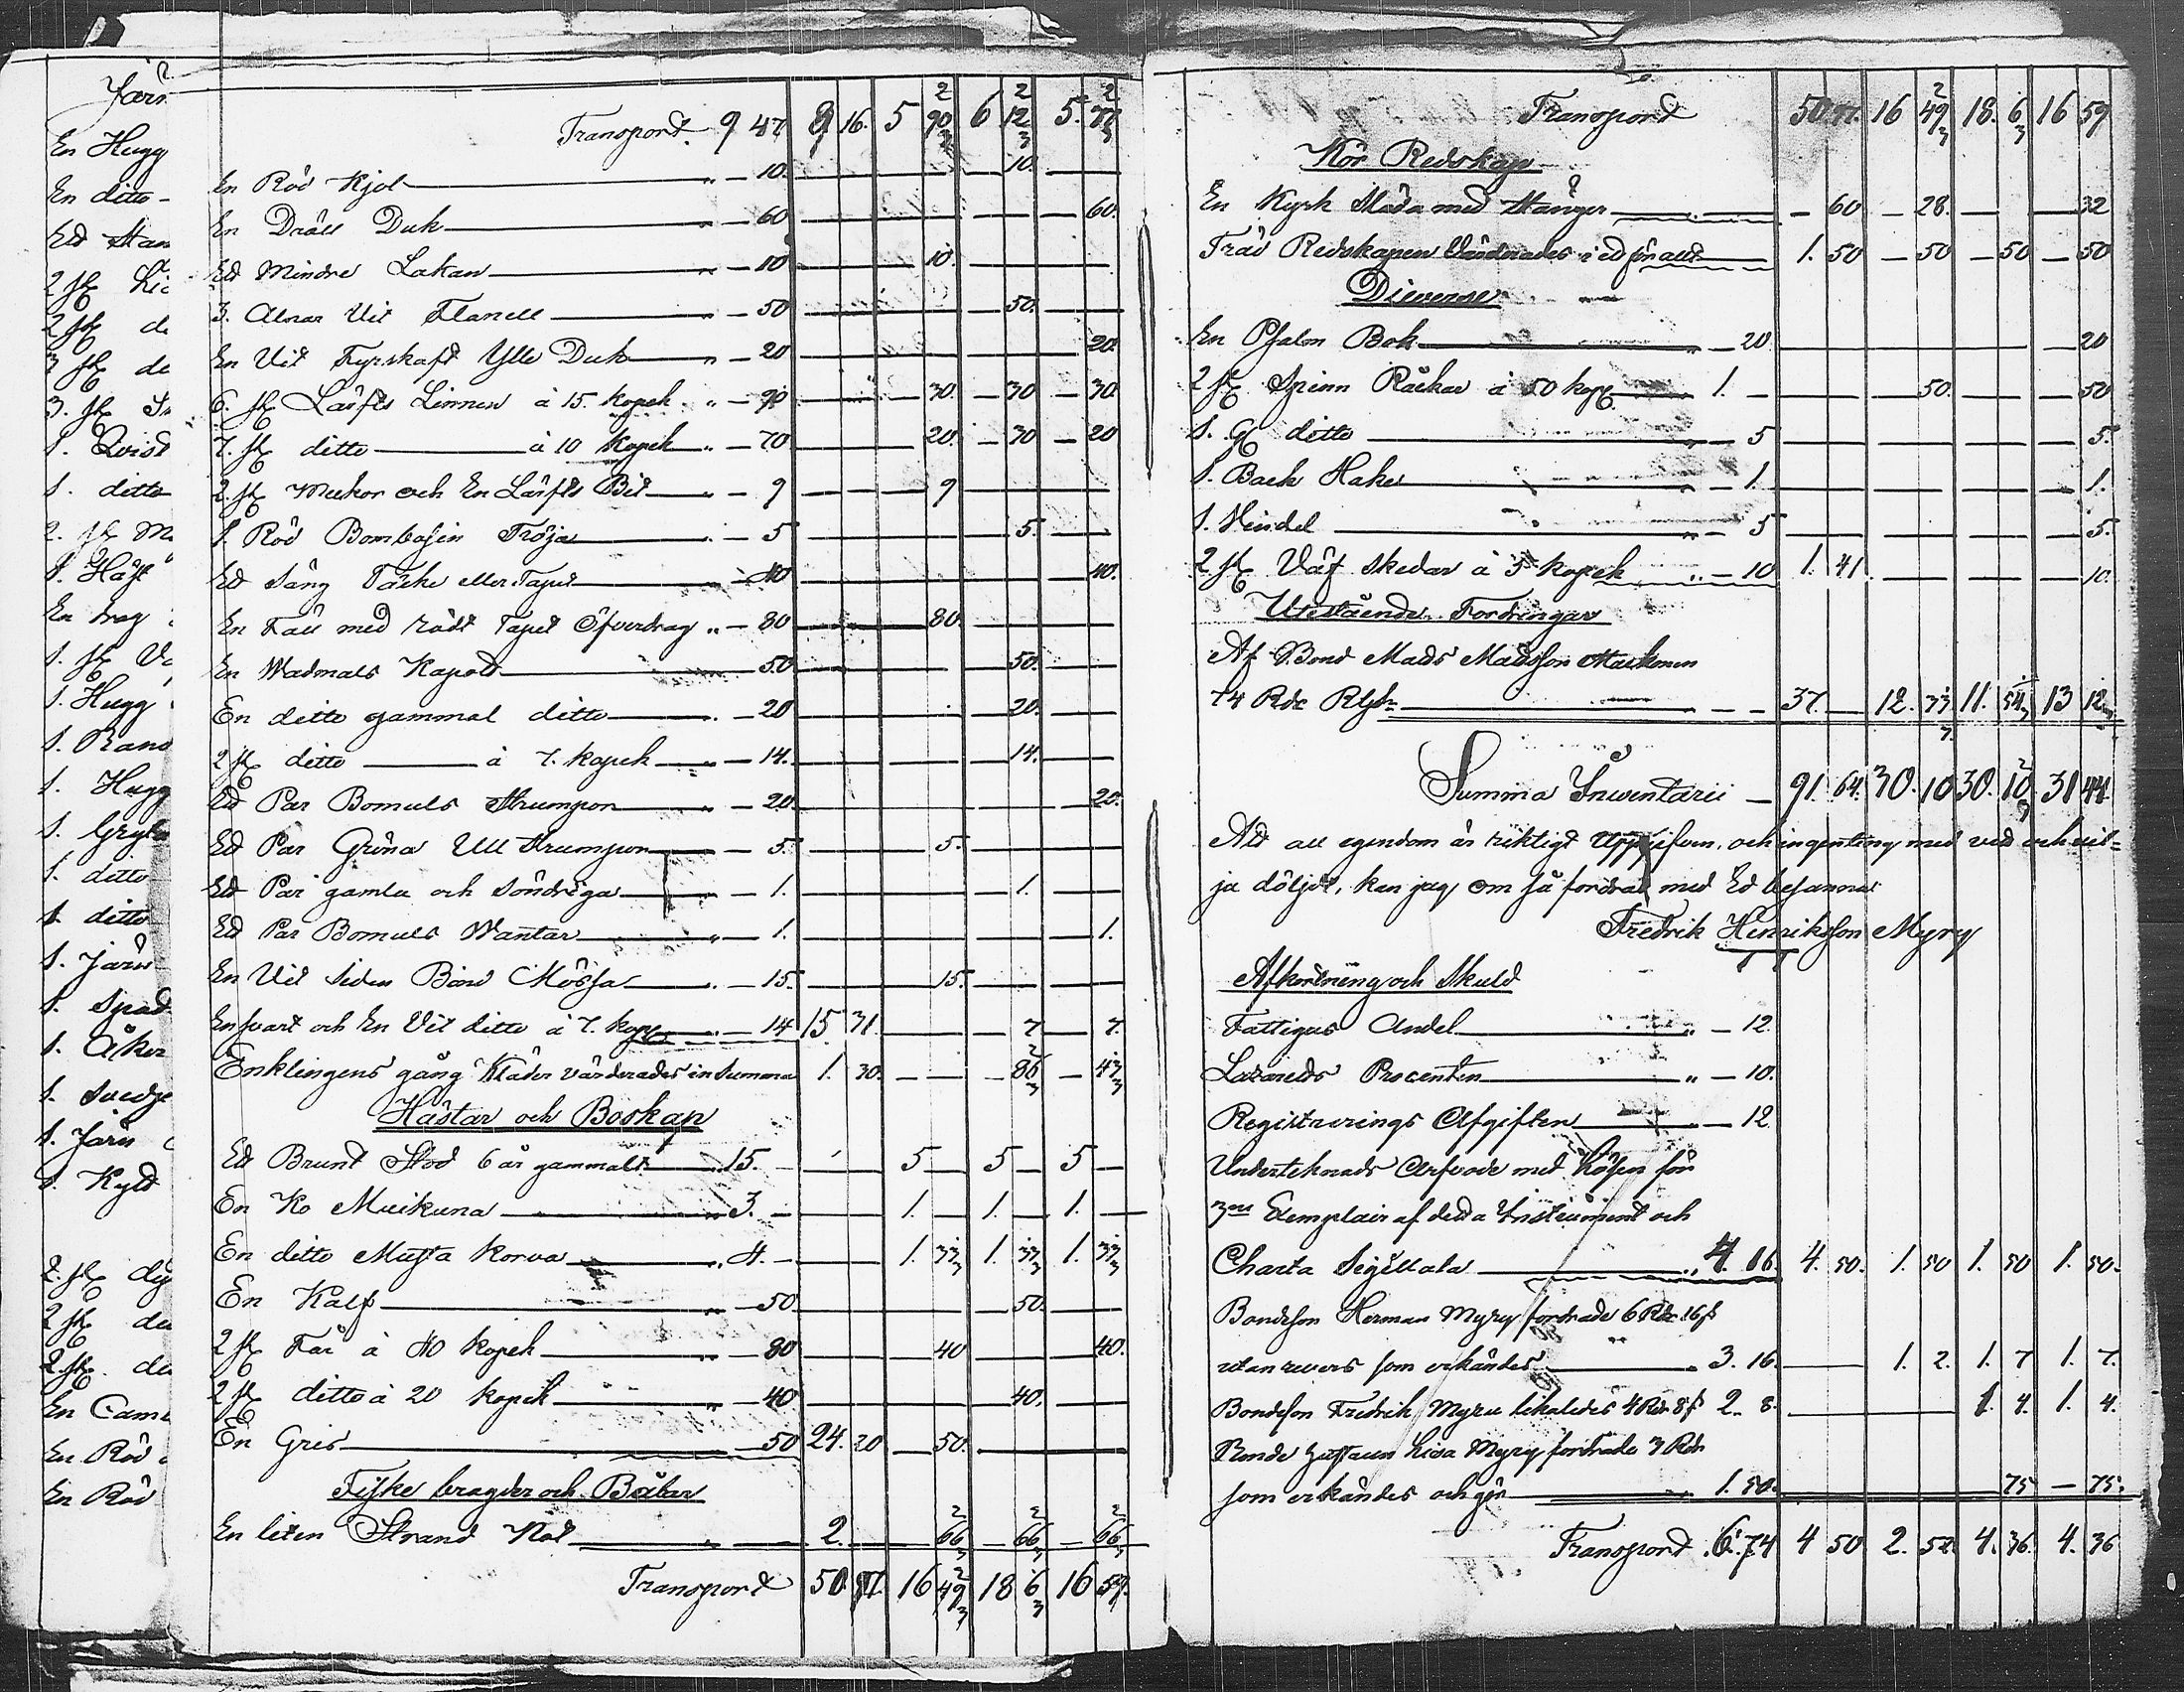 Järn
En Hugg
En ditto
Ett Stan
2 st
2 st
3 st
3. st
1. Qvist
1. ditto
2. st
1. Håf
En
1. st
1. Hugg
1. Rans
1. Hugg
1. Gryta
1. ditto
1. ditto
1. Järn
1. Spad
1. Åker
1.
1. Järn
1.
2. st
2 st
2 st.
En
En Röd
En Röd
Transport. 9 47 8 16. 5 90 2/3 6 12 2/3 5. 77 2/3
En Röd Kjol " — 10. 10.
En Dräll Duk " — 60 60.
Ett Mindre Lakan " — 10 10.
3. Alnar Vit Flanell " — 50 50.
En Vit Fyrskaft Ylle Duk " — 20 20.
6. st Lärfts Linnen à 15. kopek " — 90 30. 30 30.
7. st ditto à 10 kopek " — 70 20. 30 20
2. st och En Lärfts Bit " — 9 9
1. Röd Bombasin Tröja " — 5 5.
Ett Säng Täcke eller Tapet " — 40 40.
En Fäll med rödt Tapet Öfverdrag " — 80 80.
En Wadmals Kapott 50 50.
En ditto gammal ditto — 20 20.
2 st ditto à 7. kopek " — 14. 14.
Ett Par Bomuls Strumpor " — 20. 20.
Ett Par Gröna Ull Strumpor — 5. 5.
Ett Par gamla och söndriga — 1. 1.
Ett Par Bomuls Wantar " — 1. 1.
En Vit Siden Bind Mössa — 15. 15.
En svart och En Vit ditto à 7. kop " — 14 15 31 7 7.
Enklingens gång Kläder värderades in Summa 1. 30. 86 2/3 43 1/3
Hästar och Boskap
Ett Brunt Stod 6 år gammalt 15. 5 5 5
En Ko Muikuna " 3. 1. 1. 1.
En ditto Musta Korva " 4. 1. 33 1/3 1. 33 1/3 1. 33 1/3
En Kalf " — 50 50.
2 st Får à 40 kopek " — 80 40 40.
2 st ditto à 20 kopek " — 40 40.
En Gris 50 24. 20 50.
Fiske bragder och Båtar
En liten Strand Not 2. 66 2/3 66 2/3 66 2/3
Transport 50 97. 16 49 2/3 18 6 2/3 16 59.
Transport 50 97. 16 49 2/3 18. 6 2/3 16 59
Kör Redskap
En Kyrk Släda med stänger — 60 — 28. 32
Träd Redskapen Värderades i ett för allt 1. 50 — 50 — 50 — 50
Dieverse
En Psalm Bok " — 20. 20
2 st Spinn Råckar à 50 kop 1. — 50. 50
1. st ditto " — 5 5.
1. Back Hake " — 1. 1.
1. Hindel " — 5 5.
2 st Väf skedar à 5 kopek " — 10 1. 41 10
Utestående Fordringar
Af Bond Mads Madsson
74 Rdr Rgs 37. 12. 33 1/3 11. 54 13 12
Summa Inventarii — 91. 64. 30. 10 30. 10 31 44.
Att all egendom är riktigt Uppgifven, och ingenting med vett och vil-
ja döljdt, kan jag, om så fordras med Ed besanna
Fredrik Henriksson Myry
Afkortning och Skuld
Fattigas Andel " — 12.
Lazaretts Procenten " — 10.
Registrerings Afgiften — 12
Underteknads Arfvode med lösen för
3ne Exemplair af detta Instrument och
Charta Sigillata 4. 16 4. 50. 1. 50 1. 50 1. 50.
Bondeson Herman Myry fordrade 6 Rdr. 16 s
utan revers som erkändes 3. 16. 1. 2. 1. 7 1. 7.
Bondeson Fredrik Myry likaledes 4 Rdr 8 s 2. 8. 1. 4. 1. 4.
Bonde Gustaf Myry fordrade 3 Rdr
som erkändes och gör 1. 50. 75 — 75.
Transport 6. 74 4 50 2. 52. 4. 36. 4. 36